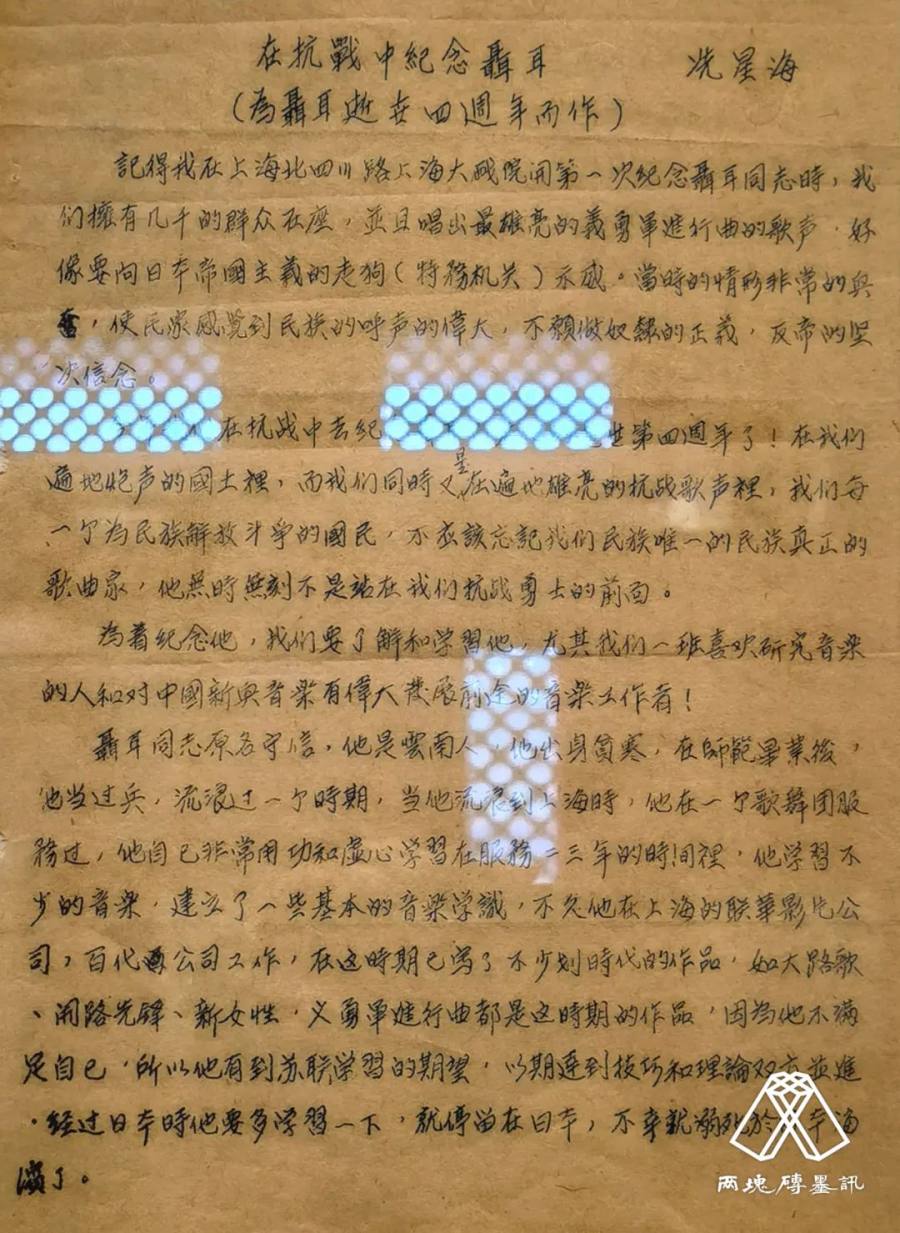 在抗戰中紀念聶耳 冼星海
(為聶耳逝世四週年而作)
記得我在上海北四川路上海大戯院開第一次紀念聶耳同志時，我
们擁有几千的群众在座，並且唱出最雄亮的義勇軍進行曲的歌声，好
像要向日本帝國主義的走狗(特務机关)示威。當時的情形非常的興
奮，使民家感覺到民族的呼声的偉大，不願做奴隸的正義，反帝的坚
决信念。
在抗战中去紀 世第四週年了！在我们
遍地炮声的國土裡，而我们同時又是在遍地雄亮的抗战歌声裡，我们每
一个为民族解放斗爭的國民，不应該忘記我们民族唯一的民族真正的
歌曲家，他無時無刻不是站在我们抗战勇士的前面。
為着紀念他，我们要了解和学習他，尤其我们一班喜欢研究音楽
的人和对中國新興音楽有偉大發展前途的音楽工作者！
聶耳同志原名守信，他是雲南人，他出身貧寒，在師範畢業後，
他当过兵，流浪过一个時期，当他流浪到上海時，他在一个歌舞团服
務过，他自己非常用功和虚心学習在服務二三年的時間裡，他学習不
少的音楽，建立了一些基本的音楽学識，不久他在上海的联華影片公
司，百代公司工作，在这時期已写了不少划時代的作品，如大路歌
、開路先鋒、新女性，义勇軍進行曲都是这時期的作品，因為他不滿
足自己，所以他有到苏联学習的期望，以期達到技巧和理論双方並進
，經过日本時他要多学習一下，就停留在日本，不幸就溺死於日本海
濱了。
两塊磚墨訊